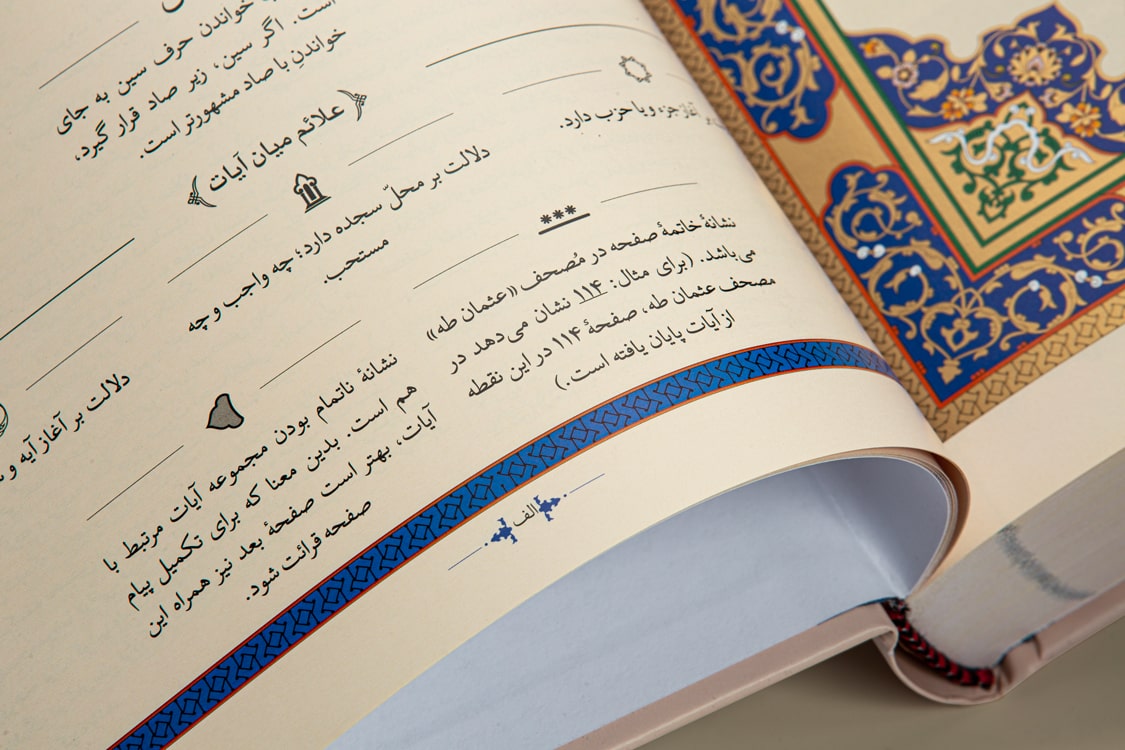 خواندن حرف سین به جای
است. اگر سین، زیر صاد قرار گیرد،
خواندن با صاد مشهورتر است.
﴿علائم میان آیات﴾
آغاز جزء و یا حزب دارد.
دلالت بر محلّ سجده دارد؛ چه واجب و چه
مستحب.
***
نشانهٔ خاتمهٔ صفحه در مُصحف «عثمان طه»
می‌باشد. (برای مثال: ۱۱۴ نشان می‌دهد در
مصحف عثمان طه، صفحهٔ ۱۱۴ در این نقطه
از آیات پایان یافته است.)
دلالت بر آغاز آیه و
نشانهٔ ناتمام بودن مجموعه آیات مرتبط با
هم است. بدین معنا که برای تکمیل پیام
آیات، بهتر است صفحهٔ بعد نیز همراه این
صفحه قرائت شود.
الف